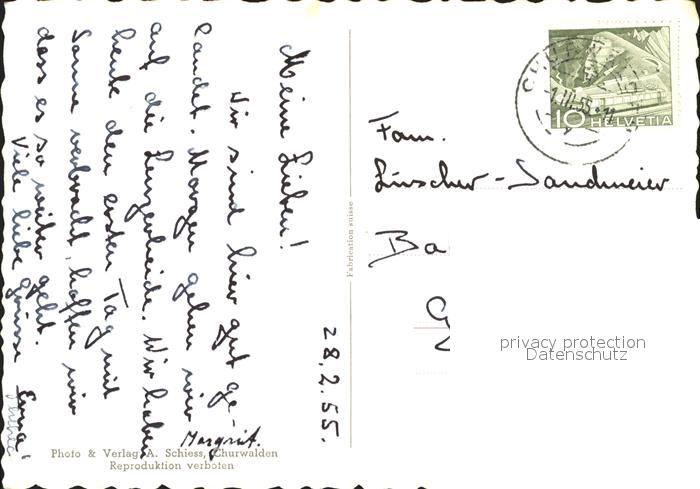 28.2.55.
Meine Lieben!
Wir sind hier gut ge-
landet. Morgen gehen wir
auf die Lenzerheide. Wir haben
heute den ersten Tag mit
Sonne verbracht, hoffen wir
dass es so weiter geht.
Viele liebe Grüsse Erna
Margrit.
Photo & Verlag A. Schiess, Churwalden
Reproduktion verboten
Fabrication suisse
1.III.55
10 HELVETIA
Fam.
Lüscher-Sandmeier
Ba
privacy protection
Datenschutz